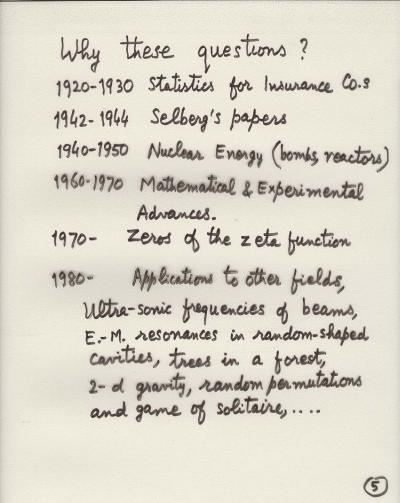 Why these questions ?
1920-1930 Statistics for Insurance Co.s
1942-1944 Selberg's papers
1940-1950 Nuclear Energy (bombs, reactors)
1960-1970 Mathematical & Experimental
Advances.
1970- Zeros of the zeta function
1980- Applications to other fields,
Ultra-sonic frequencies of beams,
E.-M. resonances in random-shaped
cavities, trees in a forest,
2-d gravity, random permutations
and game of solitaire,....
5